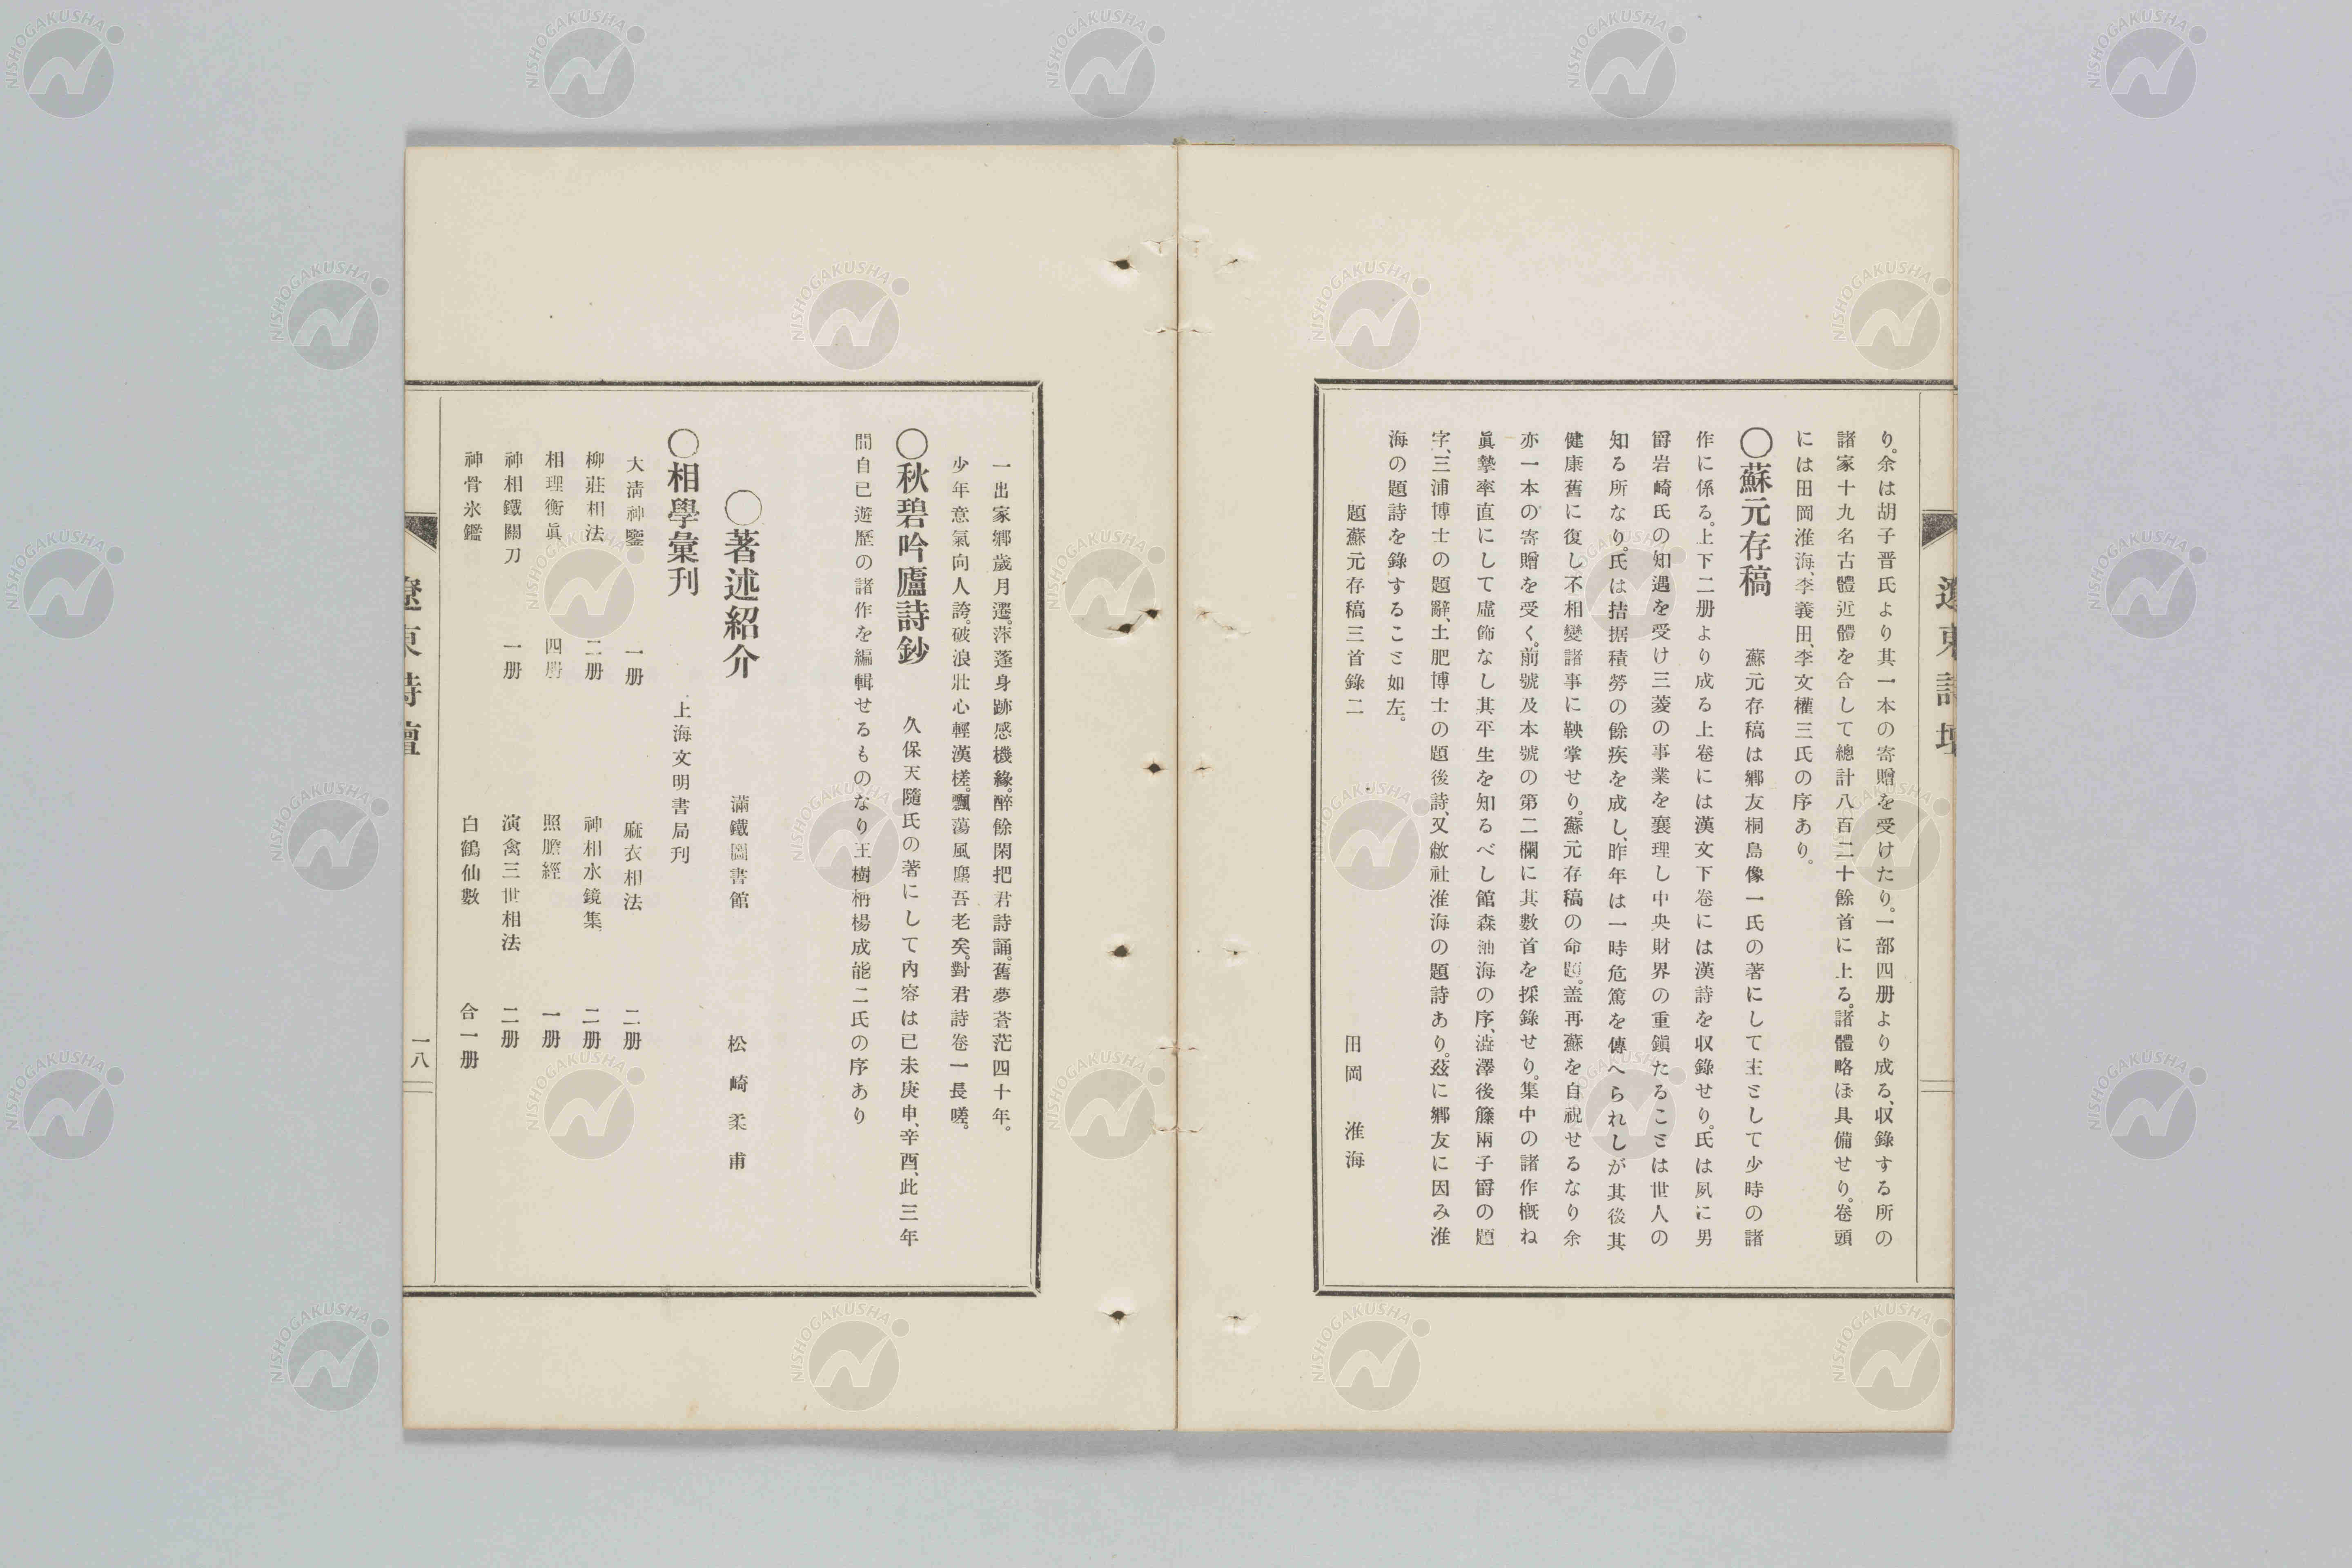 り。余は胡子晋氏より其一本の寄贈を受けたり。一部四册より成る、収錄する所の
諸家十九名古體近體を合して總計八百二十餘首に上る。諸體略ぼ具備せり。卷頭
には田岡淮海、李義田、李文權三氏の序あり。
〇蘇元存稿　蘇元存稿は鄕友桐島像一氏の著にして主として少時の諸
作に係る。上下二册より成る上卷には漢文下卷には漢詩を収錄せり。氏は夙に男
爵岩崎氏の知遇を受け三菱の事業を襄理し中央財界の重鎭たることは世人の
知る所なり。氏は拮据積勞の餘疾を成し、昨年は一時危篤を傳へられしが其後其
健康舊に復し不相變諸事に鞅掌せり。蘇元存稿の命題。盖再蘇を自祝せるなり余
亦一本の寄贈を受く。前號及本號の第二欄に其數首を採錄せり。集中の諸作槪ね
眞摯率直にして虛飾なし其平生を知るべし館森海の序、澁澤後籐兩子爵の題
字、三浦博士の題辭、土肥博士の題後詩、又敝社淮海の題詩あり。茲に鄕友に因み淮
海の題詩を錄すること如左。
題蘇元存稿三首錄二　田岡　淮海
一出家鄕歲月遷。萍蓬身跡感機緣。醉餘閑把君詩誦。舊夢蒼茫四十年。
少年意氣向人誇。破浪壯心輕漢槎。飄蕩風塵吾老矣。對君詩卷一長嗟。
〇秋碧吟廬詩鈔　久保天隨氏の著にして內容は已未庚申、辛酉、此三年
間自已遊歷の諸作を編輯せるものなり王樹枏楊成能二氏の序あり
〇著述紹介　滿鐵圖書館　松崎柔甫
〇相學彙刊　上海文明書局刊
大淸神鑒　一册　麻衣相法　二册
柳莊相法　二册　神相水鏡集　二册
相理衡眞　四册　照膽經　一册
神相鐵關刀　一册　演禽三世相法　二册
神骨氷鑑　白鶴仙數　合一册
遼東詩壇
一八